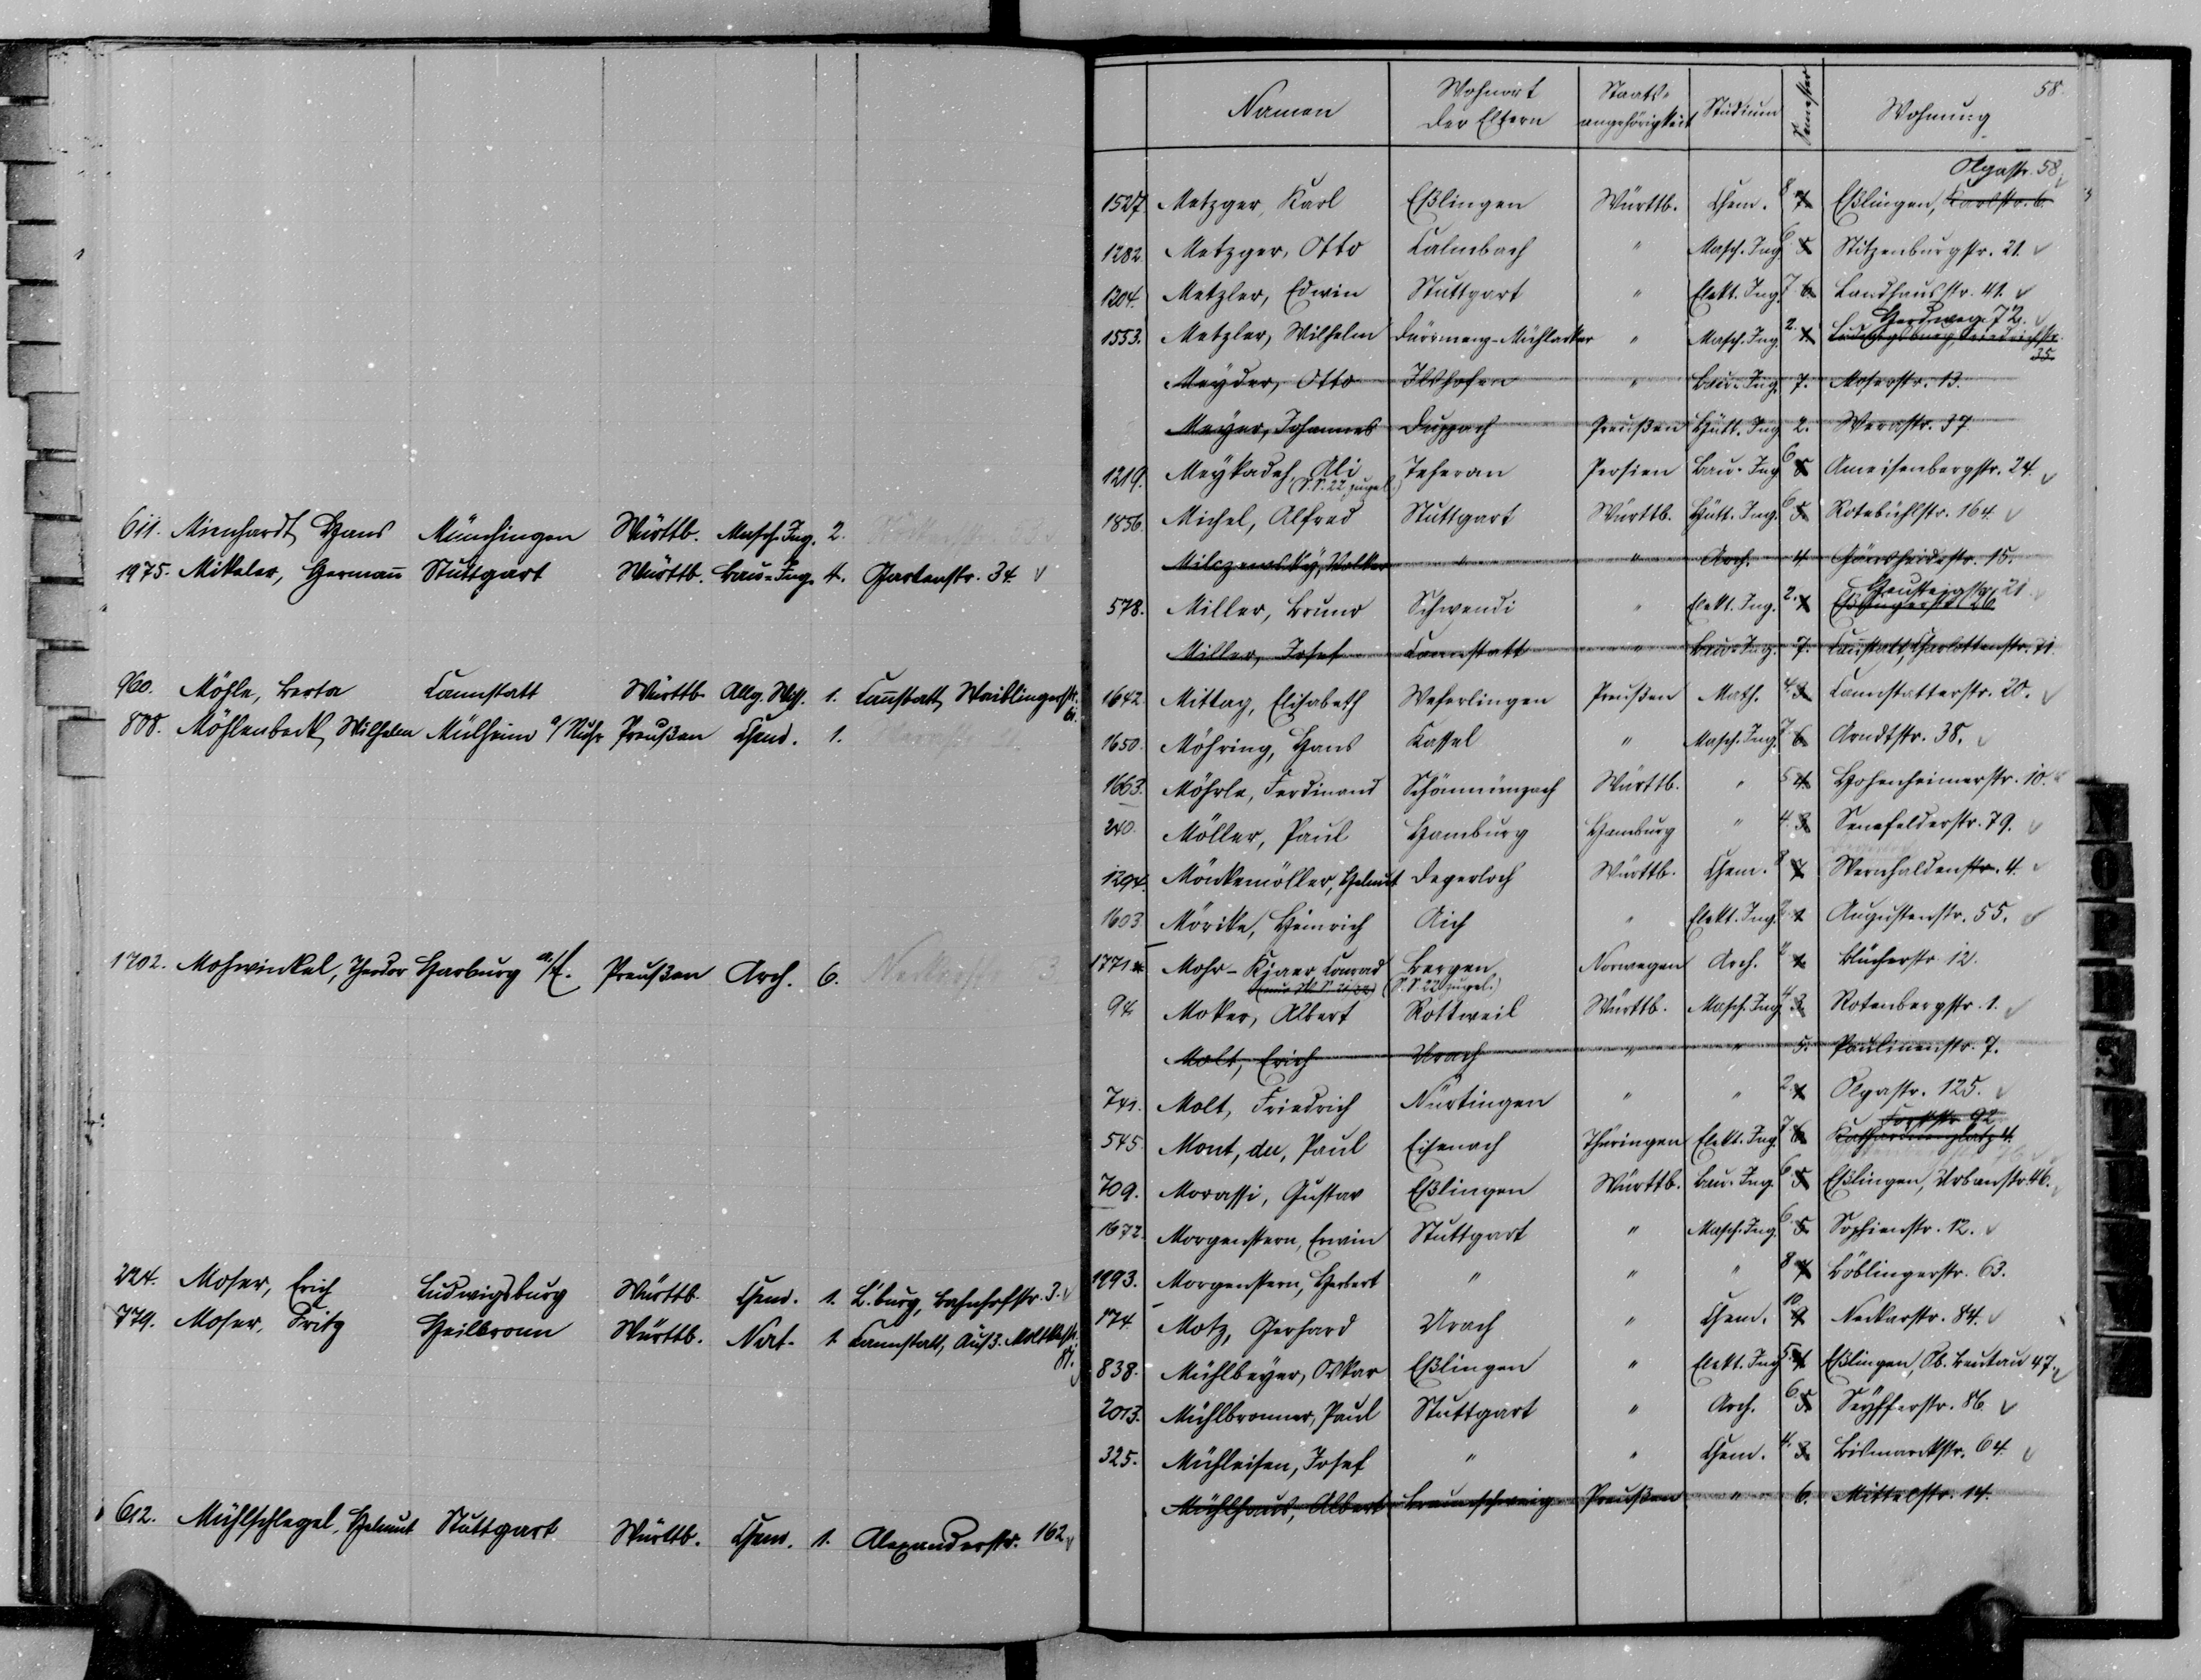 611. Mienhardt, Hans Münsingen Württb. Masch. Ing. 2.
1975. Mikeler, Hermann Stuttgart Württb. Bau-Ing. 4. Gartenstr. 34
960. Möhle, Berta Cannstatt Württb. Allg. Wiss. 1. Cannstatt, Waiblingerstr. 6.
808. Möhlenbeck, Wilhelm Mülheim a/Ruhr Preußen Chem. 1.
1702. Mohwinkel, Theodor Harburg a./E. Preußen Arch. 6. Neckarstr. 3
224. Moser, Erich Ludwigsburg Württb. Chem. 1. L'burg, Bahnhofstr. 3.
779. Moser, Fritz Heilbronn Württb. Nat. 1. Cannstatt, Äuß. Moltkestr. 81.
612. Mühlschlegel, Helmut Stuttgart Württb. Chem. 1. Alexanderstr. 162
58.
Namen Wohnort der Eltern Staatsangehörigkeit Studium Semester Wohnung
Olgastr. 58
1527. Metzger, Karl Eßlingen Württb. Chem. 8 7. Eßlingen, Karlstr. 6.
1282. Metzger, Otto Calmbach " Masch. Ing. 6 5. Stitzenburgstr. 21.
1204. Metzler, Edwin Stuttgart " Elekt. Ing. 7 6. Landhausstr. 41.
Herdweg 72.
1553. Metzler, Wilhelm Dürrmenz-Mühlacker " Masch. Ing. 2. 1. Ludwigsburg, Friedrichstr. 35.
Meyder, Otto Ilshofen " Bau-Ing. 7. Moserstr. 13.
Meyer, Johannes Duppach Preußen Hütt. Ing. 2. Werastr. 37
1219. Meykadeh, Ali Teheran Persien Bau-Ing. 6 5. Ameisenbergstr. 24.
(S.S. 22 zugel.)
1856. Michel, Alfred Stuttgart Württb. Hütt. Ing. 6 5. Rotebühlstr. 164.
Milczewsky, Volker " " Arch. 4. 15.
Hausteigstr. 21
578. Miller, Bruno Schwendi " Elekt. Ing. 2. 1. Eßlingerstr. 26
Miller, Josef Cannstatt " Bau-Ing. 7. Cannstatt, Charlottenstr. 71
1642. Mittag, Elisabeth Weferlingen Preußen Math. 4. 3. Cannstatterstr. 20.
1650. Möhring, Hans Kassel " Masch. Ing. 7 6. Arndtstr. 38.
1663. Möhrle, Ferdinand Schönmünzach Württb. " 5 4. Hohenheimerstr. 10.
240. Möller, Paul Hamburg Hamburg " 4. 3. Senefelderstr. 79.
1294. Mönkemöller, Helmut Degerloch Württb. Chem. 8 7. Wernhaldenstr. 4.
1603. Mörike, Heinrich Aich " Elekt. Ing. 2. 1. Augustenstr. 55.
1771. Mohr-Kjaer, Conrad Bergen Norwegen Arch. 2. 1. Blücherstr. 12.
(S.S. 22 zugel.)
94. Moker, Albert Rottweil Württb. Masch. Ing. 4. 3. Rotenbergstr. 1.
Molt, Erich Urach " " 5. Paulinenstr. 7.
741. Molt, Friedrich Nürtingen " " 2. 1. Olgastr. 125.
Forststr. 92
545. Mont, du, Paul Eisenach Thüringen Elekt. Ing. 7 6. Katharinenplatz 4.
709. Morassi, Gustav Eßlingen Württb. Bau-Ing. 6. 5. Eßlingen, Urbanstr. 46.
1672. Morgenstern, Erwin Stuttgart " Masch. Ing. 6. 5. Sophienstr. 12.
1993. Morgenstern, Herbert " " " 8 7. Böblingerstr. 63.
174. Motz, Gerhard Urach " Chem. 10. 9. Neckarstr. 84.
838. Mühlbeyer, Oskar Eßlingen " Elekt. Ing. 5. 4. Eßlingen, Ob. Beutau 47.
2013. Mühlbronner, Paul Stuttgart " Arch. 6. 5. Seyfferstr. 86.
325. Mühleisen, Josef " " Chem. 4. 3. Bismarckstr. 64.
Mühlhaus, Albert Braunschweig Preußen " 6. Mittelstr. 14.